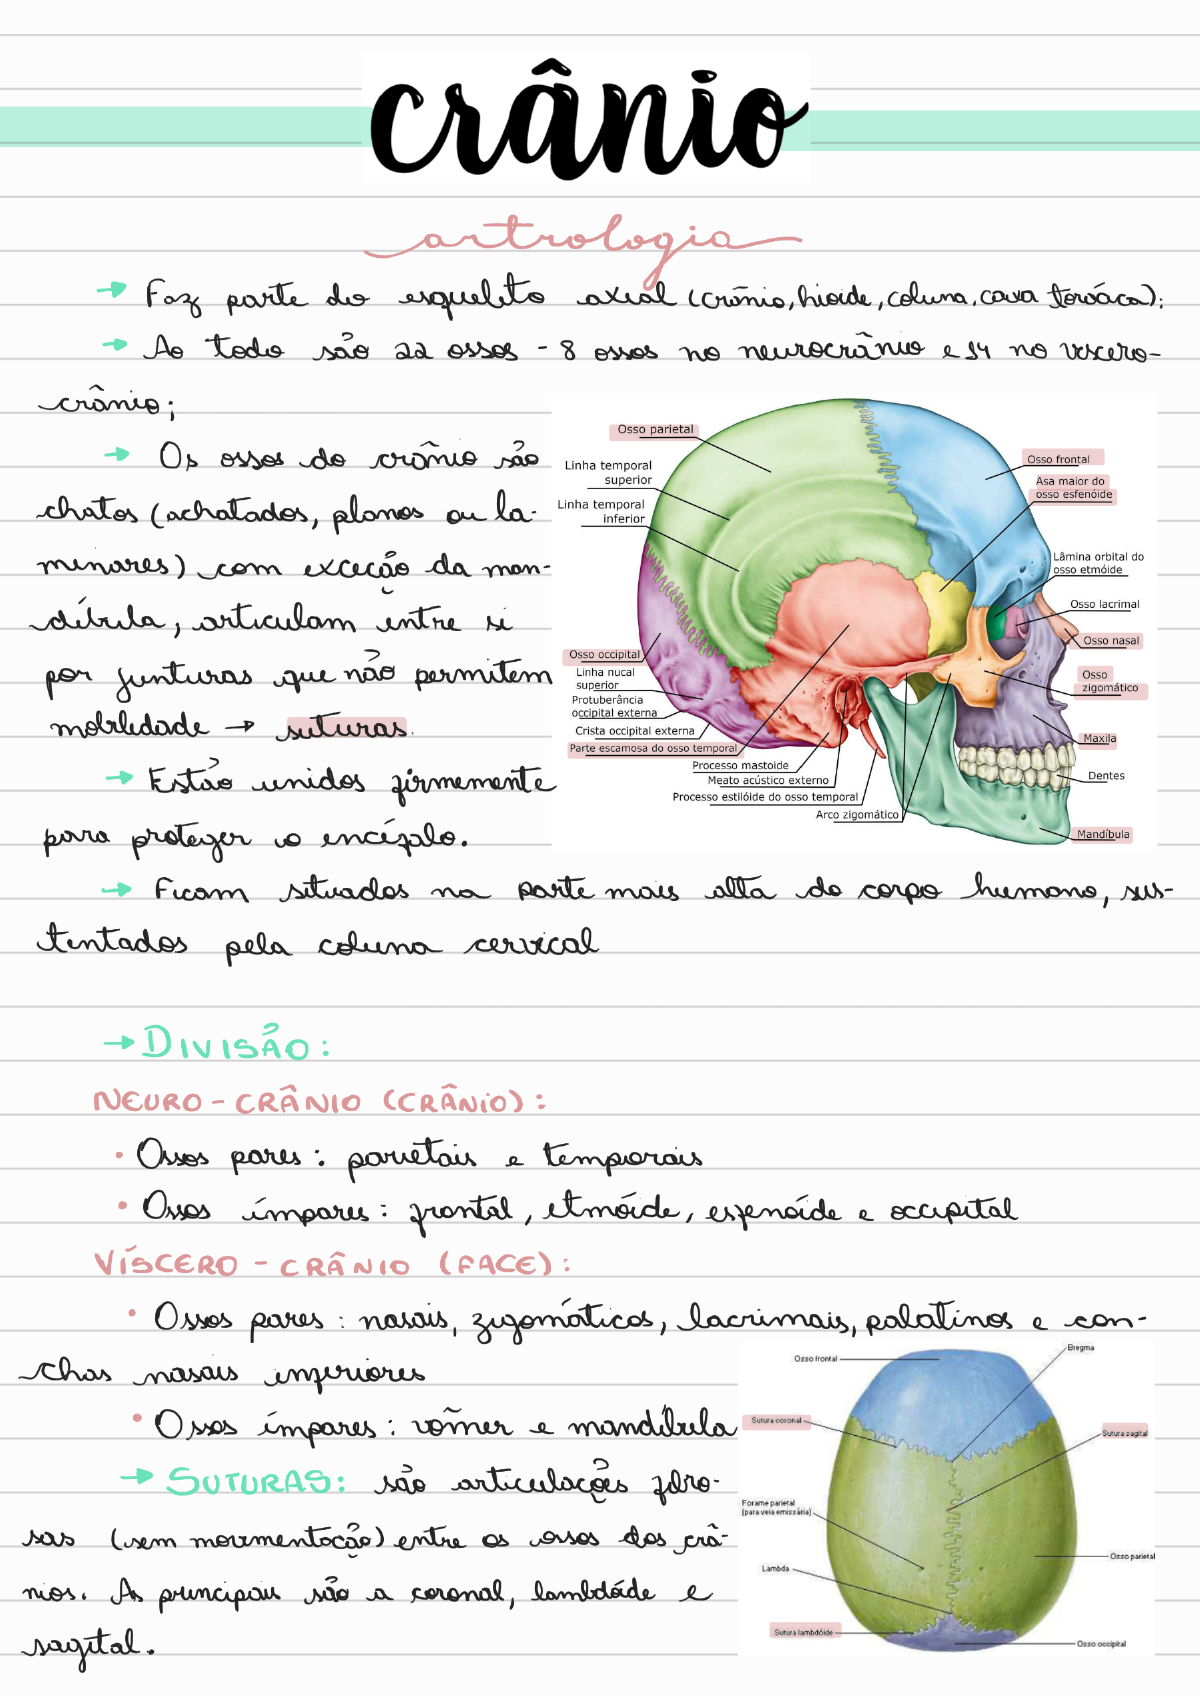 crânio
artrologia
→ Faz parte do esqueleto axial (crânio, hioide, coluna, caixa torácica);
→ Ao todo são 22 ossos - 8 ossos no neurocrânio e 14 no víscero-
crânio;
→ Os ossos do crânio são
chatos (achatados, planos ou la-
minares) com exceção da man-
díbula, articulam entre si
por junturas que não permitem
mobilidade → suturas.
→ Estão unidos firmemente
para proteger o encéfalo.
→ Ficam situados na parte mais alta do corpo humano, sus-
tentados pela coluna cervical
Osso parietal
Linha temporal
superior
Linha temporal
inferior
Osso occipital
Linha nucal
superior
Protuberância
occipital externa
Crista occipital externa
Parte escamosa do osso temporal
Processo mastoide
Meato acústico externo
Processo estilóide do osso temporal
Arco zigomático
Osso frontal
Asa maior do
osso esfenóide
Lâmina orbital do
osso etmóide
Osso lacrimal
Osso nasal
Osso
zigomático
Maxila
Dentes
Mandíbula
→ DIVISÃO:
NEURO - CRÂNIO (CRÂNIO):
• Ossos pares: parietais e temporais
• Ossos ímpares: frontal, etmóide, esfenóide e occipital
VÍSCERO - CRÂNIO (FACE):
• Ossos pares: nasais, zigomáticos, lacrimais, palatinos e con-
chas nasais inferiores
• Ossos ímpares: vômer e mandíbula
→ SUTURAS: são articulações fibro-
sas (sem movimentação) entre os ossos dos crâ-
nios. As principais são a coronal, lambdóide e
sagital.
Osso frontal
Bregma
Sutura coronal
Sutura sagital
Forame parietal
(para veia emissária)
Lambda
Osso parietal
Sutura lambdóide
Osso occipital